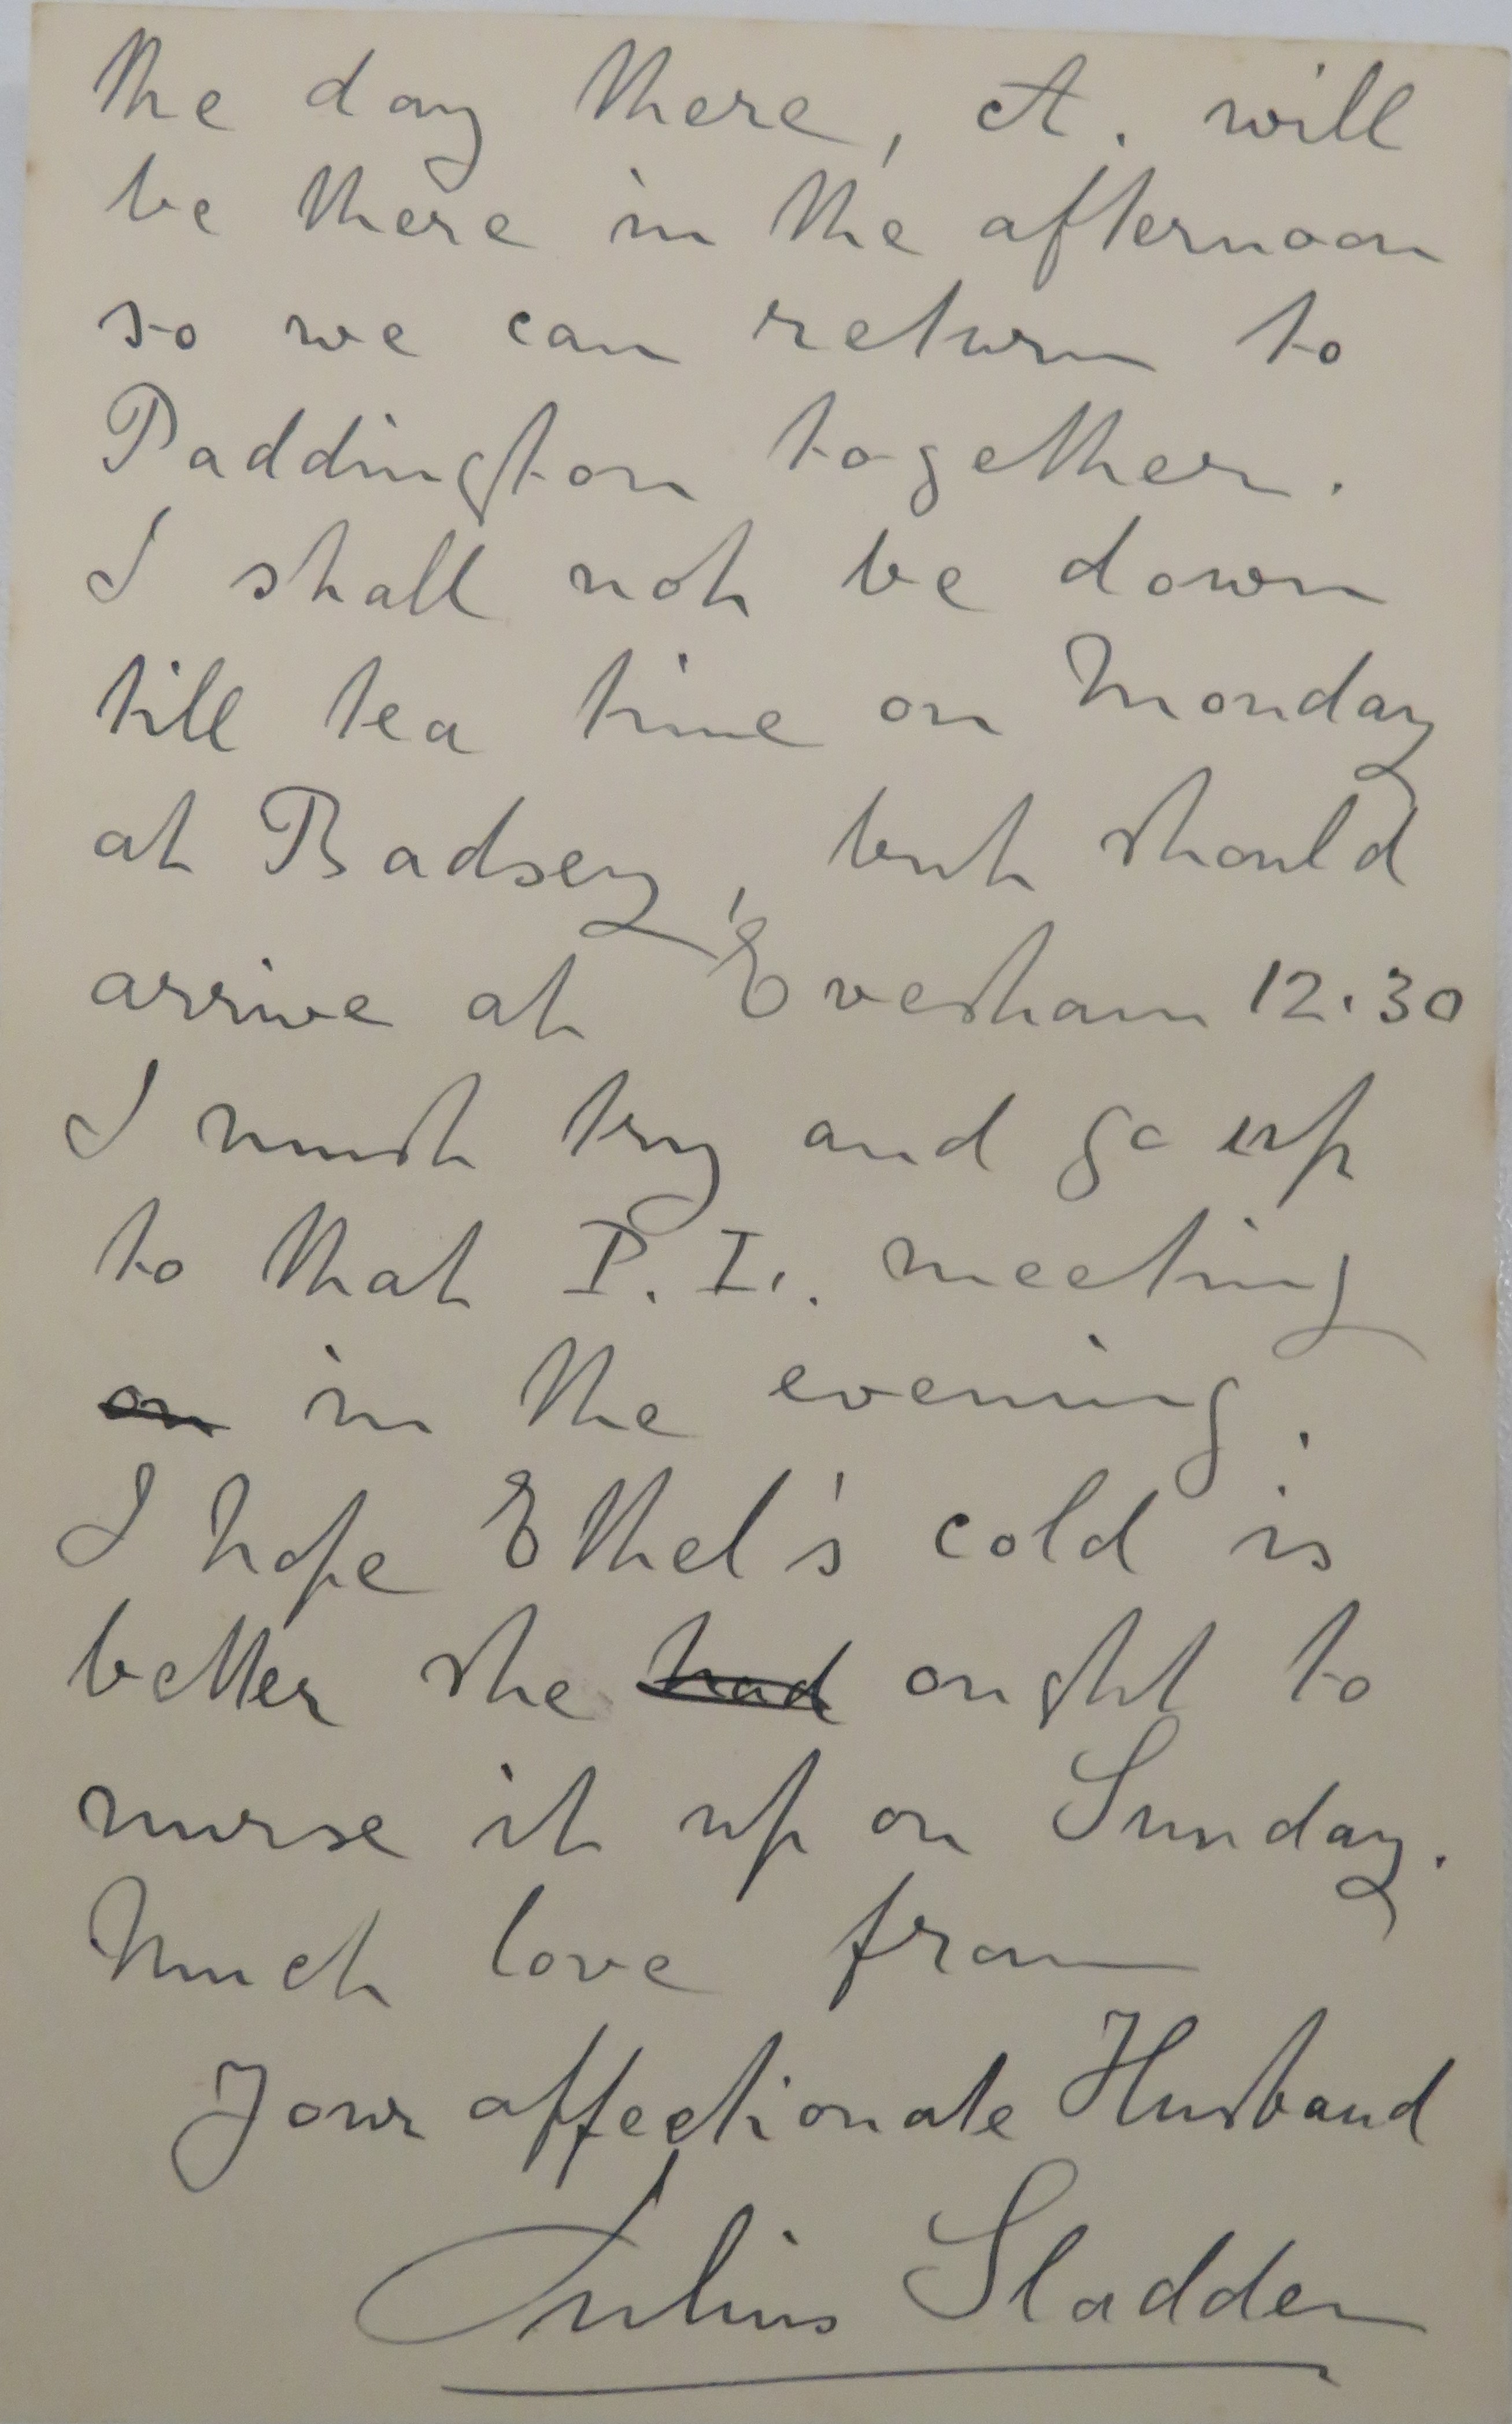 the day there, A. will
be there in the afternoon
so we can return to
Paddington together.
I shall not be down
till tea time on Monday
at Badsey, but should
arrive at Evesham 12.30
I must try and go up
to that P.I. meeting
on in the evening.
I hope Ethel's cold is
better she had ought to
nurse it up on Sunday.
Much love from
Your affectionate Husband
Julius Sladden